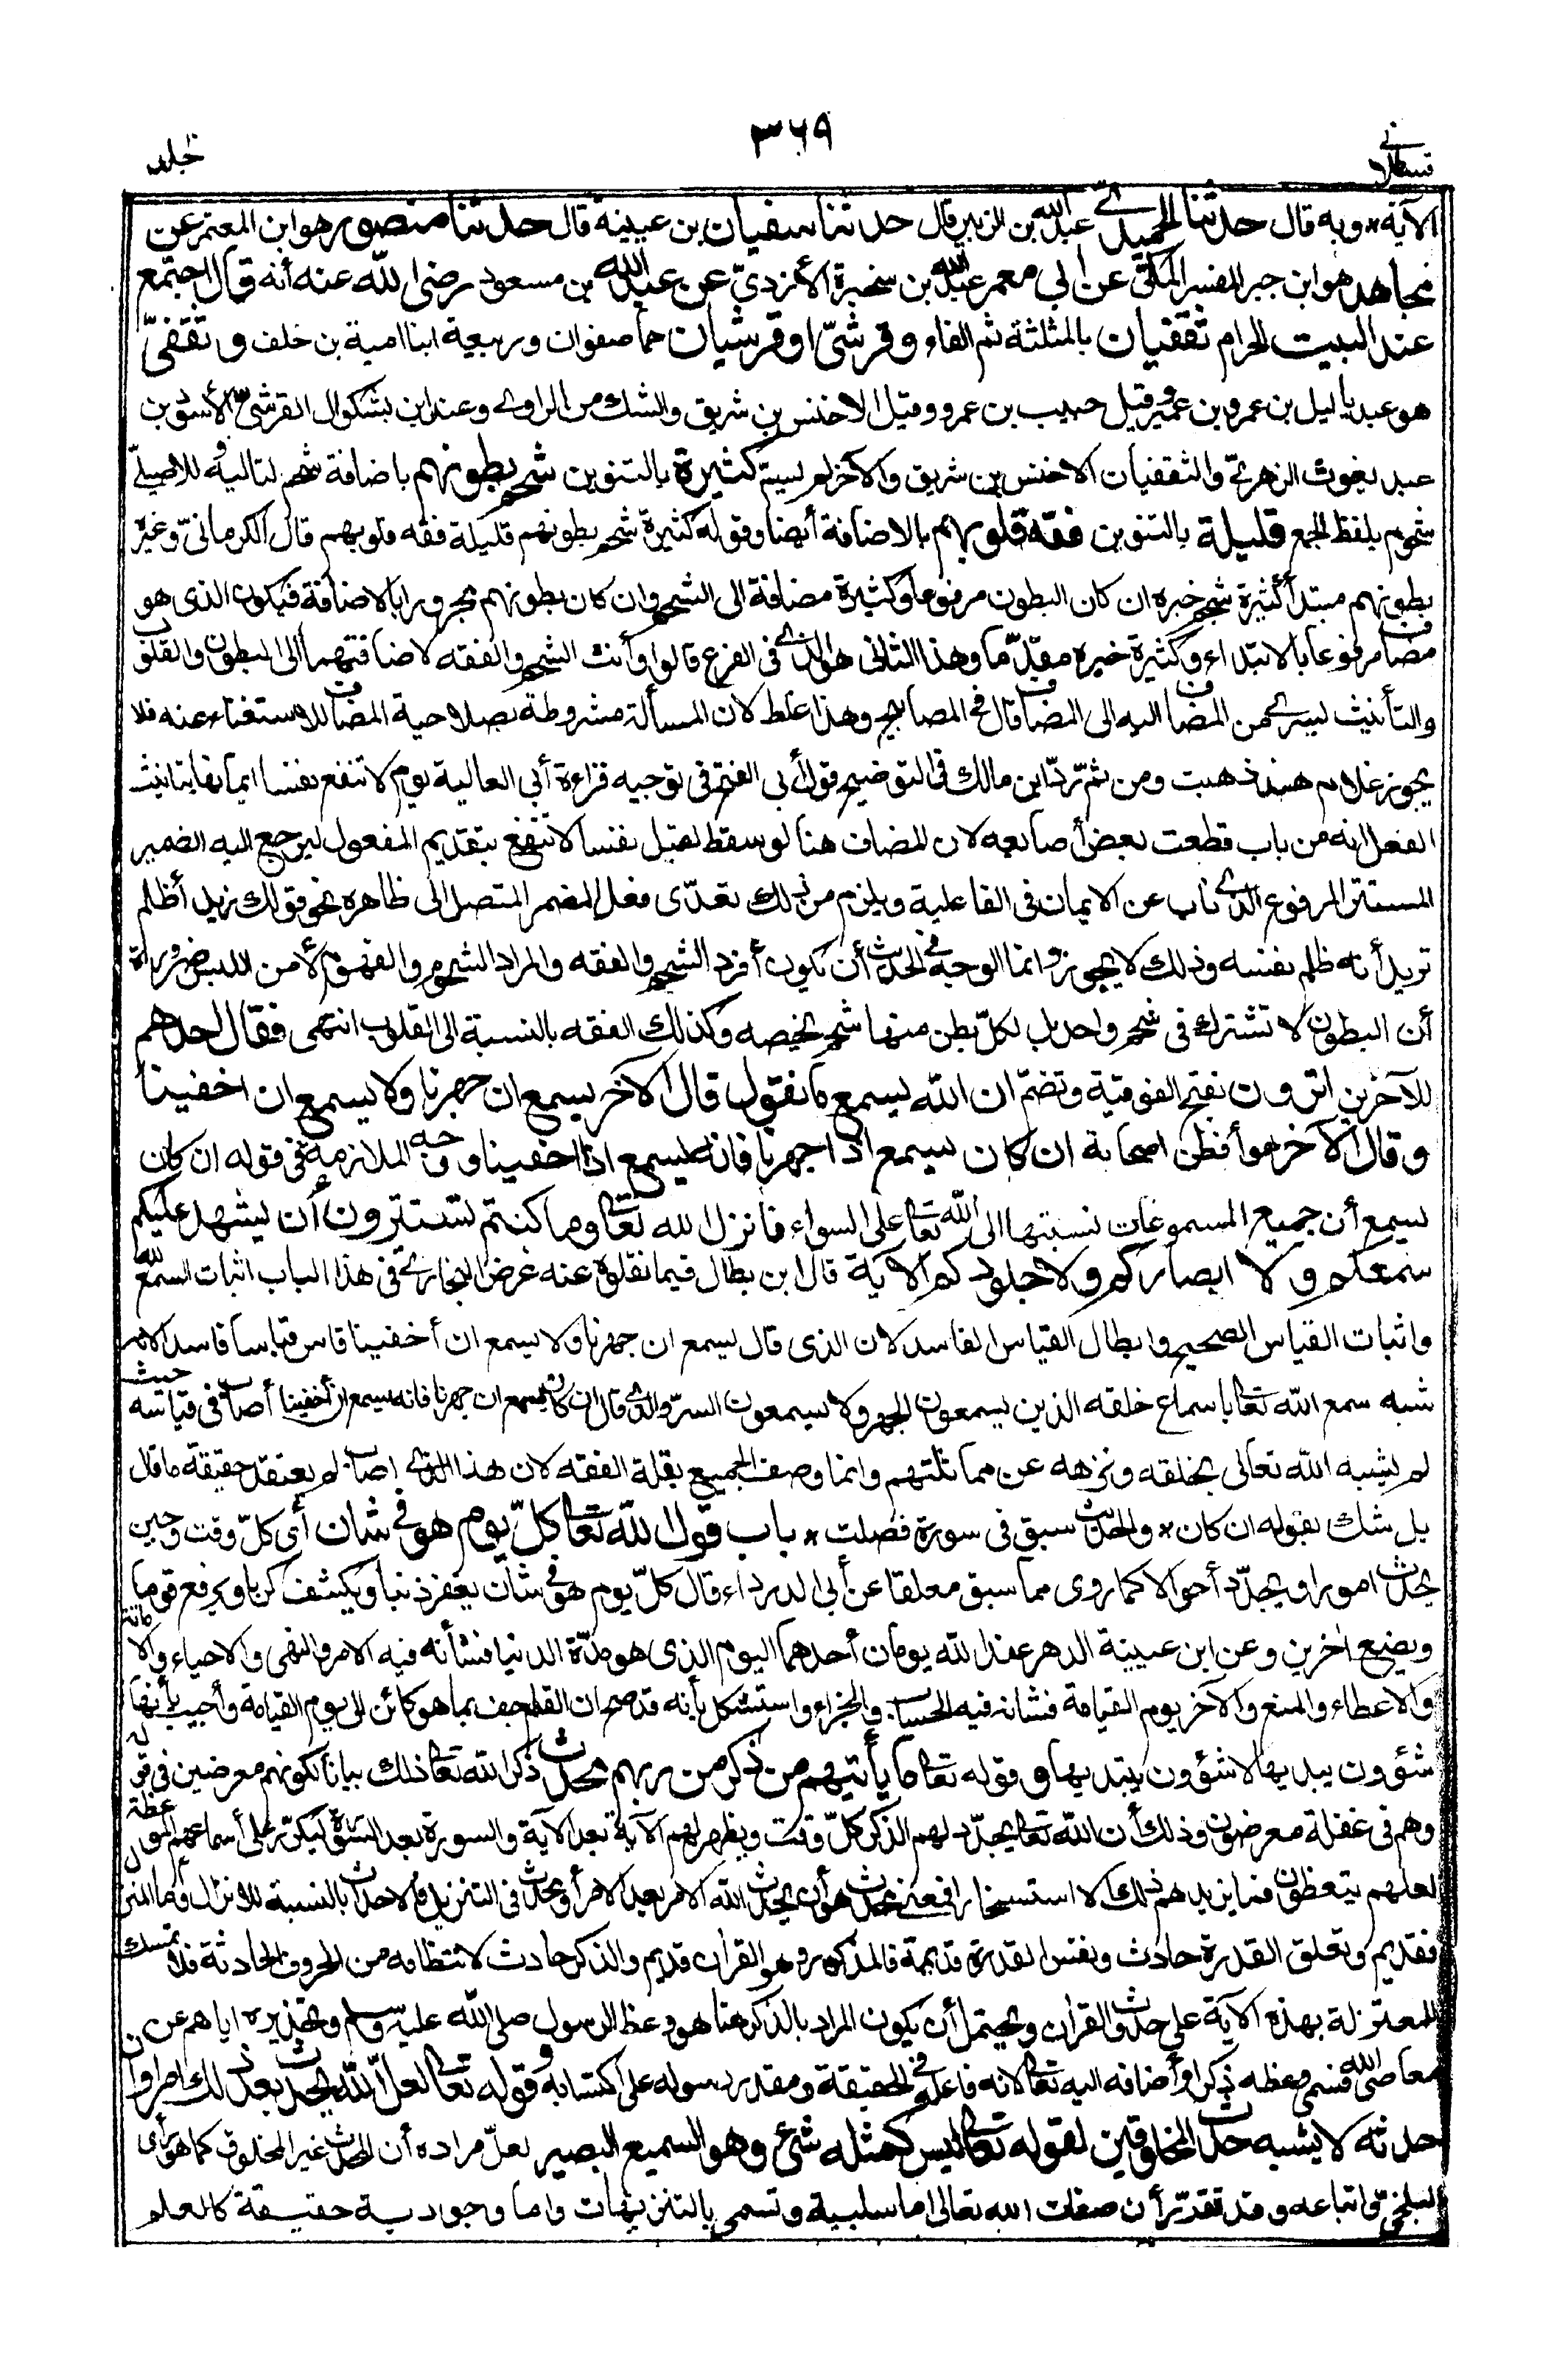 ٣٦٩
قسطلانى
جلد
الآية * وبه قال حدثنا الحميدى عبد الله بن الزبير قال حدثنا سفيان بن عيينة قال حدثنا منصور هو ابن المعتمر عن
مجاهد هو ابن جبر المفسر المكى عن أبى معمر عبد الله بن سخبرة الأزدىّ عن عبد الله بن مسعود رضى الله عنه أنه قال اجتمع
عند البيت الحرام ثقفيان بالمثلثة ثم الفاء وقرشىّ او قرشيان هما صفوان وربيعة ابنا امية بن خلف وثقفىّ
هو عبد ياليل بن عمرو بن عمير وقيل حبيب بن عمرو وقيل الاخنس بن شريق والشك من الراوى وعند ابن بشكوال القرشىّ الأسود بن
عبد يغوث الزهرىّ والثقفيان الاخنس بن شريق والآخر لم يسمّ كثيرة بالتنوين شحم بطونهم باضافة شحم لتاليه وللاصيلىّ
شحوم بلفظ الجمع قليلة بالتنوين فقه قلوبهم بالاضافة أيضا وقوله كثيرة شحم بطونهم قليلة فقه قلوبهم قال الكرمانىّ وغيره
بطونهم مبتدأ كثيرة شحم خبره ان كان البطون مرفوعا وكثيرة مضافة الى الشحم وان كان بطونهم مجرورا بالاضافة فيكون الذى هو
مضاف مرفوعا بالابتداء وكثيرة خبره مقدّما وهذا الثانى هو الذى فى الفرع قالوا وأنث الشحم والفقه لاضافتهما الى البطون والقلوب
والتأنيث يسرى من المضاف اليه الى المضاف قال فى المصابيح وهذا غلط لان المسألة مشروطة بصلاحية المضاف للاستغناء عنه فلا
يجوز غلام هند ذهبت ومن ثم ردّ ابن مالك فى التوضيح قول أبى الفتح فى توجيه قراءة أبى العالية يوم لا تنفع نفسا ايمانها بتانيث
الفعل انه من باب قطعت بعض أصابعه لان المضاف هنا لو سقط لقيل نفسا لا تنفع بتقديم المفعول ليرجع اليه الضمير
المستتر المرفوع الذى ناب عن الايمان فى الفاعلية ويلزم من ذلك تعدّى فعل المضمر المتصل الى ظاهره نحو قولك زيدا ظلم
تريد أنه ظلم نفسه وذلك لا يجوز وانما الوجه فى الحديث أن يكون أفرد الشحم والفقه والمراد الشحوم والفهوم لأمن اللبس ضرورة
أن البطون لا تشترك فى شحم واحد بل لكلّ بطن منها شحم يخصه وكذلك الفقه بالنسبة الى القلوب انتهى فقال احدهم
للآخرين اترون بفتح الفوقية وتضمّ ان الله يسمع ما نقول قال الآخر يسمع ان جهرنا ولا يسمع ان اخفينا
وقال الآخر هو أفطن اصحابه ان كان يسمع اذا جهرنا فانه يسمع اذا اخفينا ووجه الملازمة فى قوله ان كان
يسمع أن جميع المسموعات نسبتها الى الله تعالى على السواء فانزل الله تعالى وما كنتم تستترون أن يشهد عليكم
سمعكم ولا ابصاركم ولا جلودكم الآية قال ابن بطال فيما نقلوه عنه غرض البخارى فى هذا الباب اثبات السمع لله
واثبات القياس الصحيح وابطال القياس الفاسد لان الذى قال يسمع ان جهرنا ولا يسمع ان أخفينا قاس قياسا فاسدا لانه
شبه سمع الله تعالى باسماع خلقه الذين يسمعون الجهر ولا يسمعون السرّ والذى قال ان كان يسمع ان جهرنا فانه يسمع ان أخفينا أصاب فى قياسه حيث
لم يشبه الله تعالى بخلقه ونزهه عن مماثلتهم وانما وصف الجميع بقلة الفقه لان هذا الذى اصاب لم يعتقد حقيقة ما قال
بل شك بقوله ان كان * والحديث سبق فى سورة فصلت * باب قول الله تعالى كلّ يوم هو فى شان أى كلّ وقت وحين
يحدث امورا ويجدّد أحوالا كما روى مما سبق معلقا عن أبى الدرداء قال كلّ يوم هو فى شان يغفر ذنبا ويكشف كربا ويرفع قوما
ويضع اخرين وعن ابن عيينة الدهر عند الله يومان أحدهما اليوم الذى هو مدّة الدنيا فشأنه فيه الامر والنهى والاحياء والاماتة
والاعطاء والمنع والآخر يوم القيامة فشانه فيه الحساب والجزاء واستشكل بأنه قد صح ان القلم جف بما هو كائن الى يوم القيامة وأجيب بأنها
شؤون يبديها لا شؤون يبتديها وقوله تعالى ما يأتيهم من ذكر من ربهم محدث ذكر الله تعالى ذلك بيانا لكونهم معرضين فى قوله
وهم فى غفلة معرضون وذلك أن الله تعالى يجدّد لهم الذكر كلّ وقت ويظهر لهم الآية بعد الآية والسورة بعد السورة ليكرّر على أسماعهم الموعظة
لعلهم يتعظون فما يزيدهم ذلك الا استسخارا فمعنى محدث هو أن يحدث الله الامر بعد الامر أو محدث فى التنزيل فالاحداث بالنسبة للانزال وأما المنزل
فقديم وتعلق القدرة حادث ونفس القدرة قديمة فالمذكور وهو القرأن قديم والذكر حادث لانتظامه من الحروف الحادثة فلا تمسك
للمعتزلة بهذه الآية على حدوث القرأن ويحتمل أن يكون المراد بالذكر هنا هو وعظ الرسول صلى الله عليه وسلم وتحذيره اياهم عن
معاصى الله فسمى وعظه ذكرا وأضافه اليه تعالى لانه فاعله فى الحقيقة ومقدر رسوله على اكتسابه وقوله تعالى لعل الله يحدث بعد ذلك امرا وان
حدثه لا يشبه حدث المخلوقين لقوله تعالى ليس كمثله شئ وهو السميع البصير لعلّ مراده أن المحدث غير المخلوق كما هو رأى
البلخىّ واتباعه وقد تقدّر أن صفات الله تعالى اما سلبية وتسمى بالتنزيهات واما وجودية حقيقة كالعلم